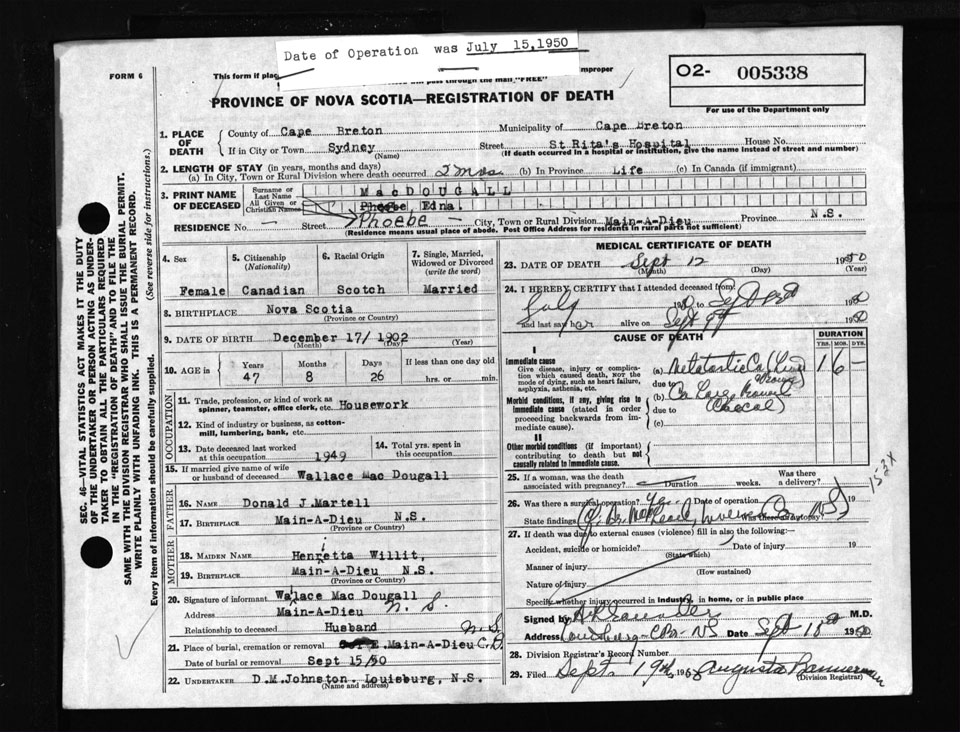 Date of Operation was July 15,1950
FORM 6
This form if plac
improper
pass through the mail "FREE"
PROVINCE OF NOVA SCOTIA—REGISTRATION OF DEATH
O2- 005338
For use of the Department only
1. PLACE OF DEATH
County of Cape Breton
Municipality of Cape Breton
If in City or Town Sydney
(Name)
Street St Rita's Hospital House No.
(If death occurred in a hospital or institution, give the name instead of street and number)
2. LENGTH OF STAY (in years, months and days)
(a) In City, Town or Rural Division where death occurred 2 mos. (b) In Province Life (c) In Canada (if immigrant)
3. PRINT NAME OF DECEASED
Surname or Last Name MacDOUGALL
All Given or Christian Names Phoebe Edna.
Phoebe
RESIDENCE No. — Street — City, Town or Rural Division Main-A-Dieu Province N.S.
(Residence means usual place of abode. Post Office Address for residents in rural parts not sufficient)
4. Sex
Female
5. Citizenship (Nationality)
Canadian
6. Racial Origin
Scotch
7. Single, Married, Widowed or Divorced (write the word)
Married
8. BIRTHPLACE Nova Scotia
(Province or Country)
9. DATE OF BIRTH December 17/ 1902
(Month) (Day) (Year)
10. AGE in
Years 47
Months 8
Days 26
If less than one day old
hrs. or min.
OCCUPATION
11. Trade, profession, or kind of work as spinner, teamster, office clerk, etc. Housework
12. Kind of industry or business, as cotton-mill, lumbering, bank, etc.
13. Date deceased last worked at this occupation 1949
14. Total yrs. spent in this occupation
15. If married give name of wife or husband of deceased Wallace Mac Dougall
FATHER
16. NAME Donald J.Martell
17. BIRTHPLACE Main-A-Dieu N.S.
(Province or Country)
MOTHER
18. MAIDEN NAME Henretta Willit,
i
19. BIRTHPLACE Main-A-Dieu N.S.
(Province or Country)
20. Signature of informant Walace Mac Dougall
Address Main-A-Dieu N. S.
Relationship to deceased Husband
21. Place of burial, cremation or removal Main-A-Dieu C.B. N.S
Date of burial or removal Sept 15/50
22. UNDERTAKER D.M.Johnston. Louisburg, N.S.
(Name and address)
MEDICAL CERTIFICATE OF DEATH
23. DATE OF DEATH Sept 12 1950
(Month) (Day) (Year)
24. I HEREBY CERTIFY that I attended deceased from:
July 1950 to Sept 1950
and last saw her alive on Sept 9th 1950
CAUSE OF DEATH
DURATION
YRS. MOS. DYS.
I
Immediate cause
Give disease, injury or complication which caused death, not the mode of dying, such as heart failure, asphyxia, asthenia, etc.
(a) Metastatic Ca (Liver
due to
Morbid conditions, if any, giving rise to immediate cause (stated in order proceeding backwards from immediate cause).
(b) Ca Large Bowel
due to (Caecal)
(c)
1 6 —
II
Other morbid conditions (if important) contributing to death but not causally related to immediate cause.
25. If a woman, was the death associated with pregnancy? Duration weeks. Was there a delivery?
26. Was there a surgical operation? Yes Date of operation 19
State findings Was there autopsy?
153X
27. If death was due to external causes (violence) fill in also the following:—
Accident, suicide or homicide? Date of injury 19
(State which)
Manner of injury
(How sustained)
Nature of injury
Specify whether injury occurred in industry, in home, or in public place
Signed by M.D.
Address Louisburg - C.B. - NS Date Sept 18th 1950
28. Division Registrar's Record Number
29. Filed Sept. 19th, 1950 Augusta Bannerman
(Division Registrar)
SEC. 46—VITAL STATISTICS ACT MAKES IT THE DUTY
OF THE UNDERTAKER OR PERSON ACTING AS UNDERTAKER
TO OBTAIN ALL THE PARTICULARS REQUIRED
IN THE "REGISTRATION OF DEATH" AND TO FILE THE
SAME WITH THE DIVISION REGISTRAR WHO SHALL ISSUE THE BURIAL PERMIT.
WRITE PLAINLY WITH UNFADING INK. THIS IS A PERMANENT RECORD.
Every item of information should be carefully supplied. (See reverse side for instructions.)